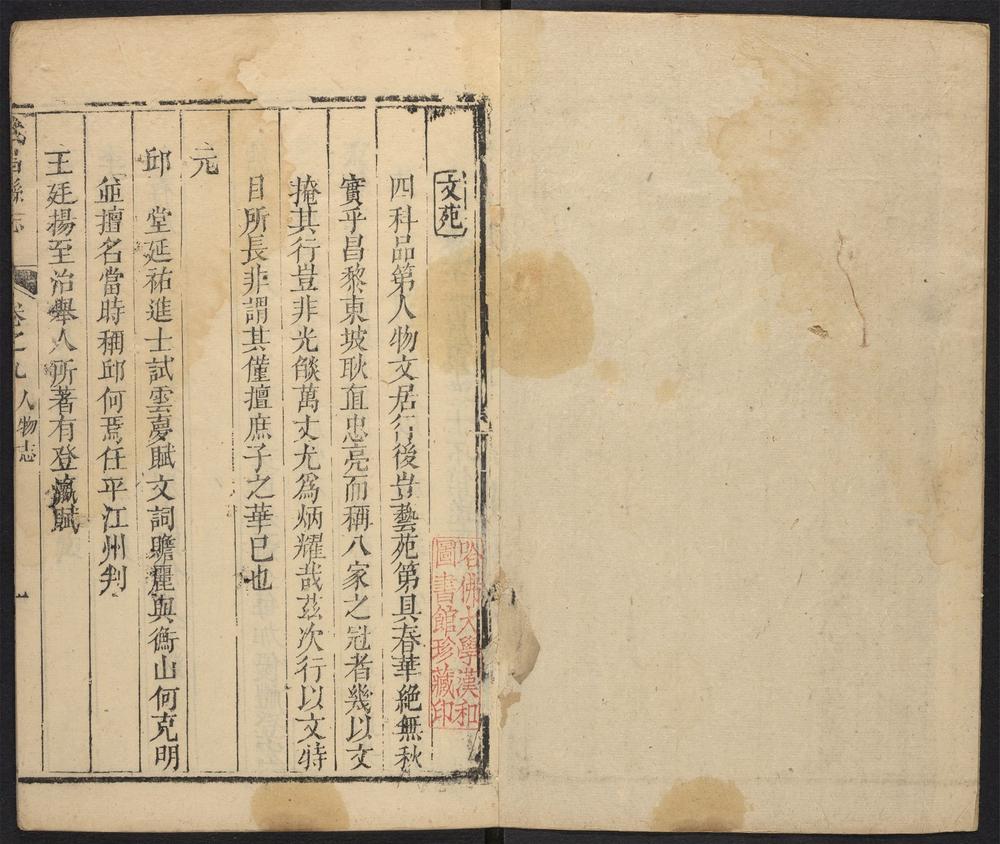 文苑
四科品第人物文居行後豈藝苑第具春華絕無秋
實乎昌黎東坡耿直忠亮而稱八家之冠者幾以文
掩其行豈非光燄萬丈尤爲炳耀哉茲次行以文特
目所長非謂其僅擅庶子之華已也
元
邱　堂延祐進士試雲夢賦文詞贍麗與衡山何克明
並擅名當時稱邱何焉任平江州判
王廷揚至治舉人所著有登瀛賦
武昌縣志 卷之九 人物志 一
哈佛大學漢和
圖書館珍藏印